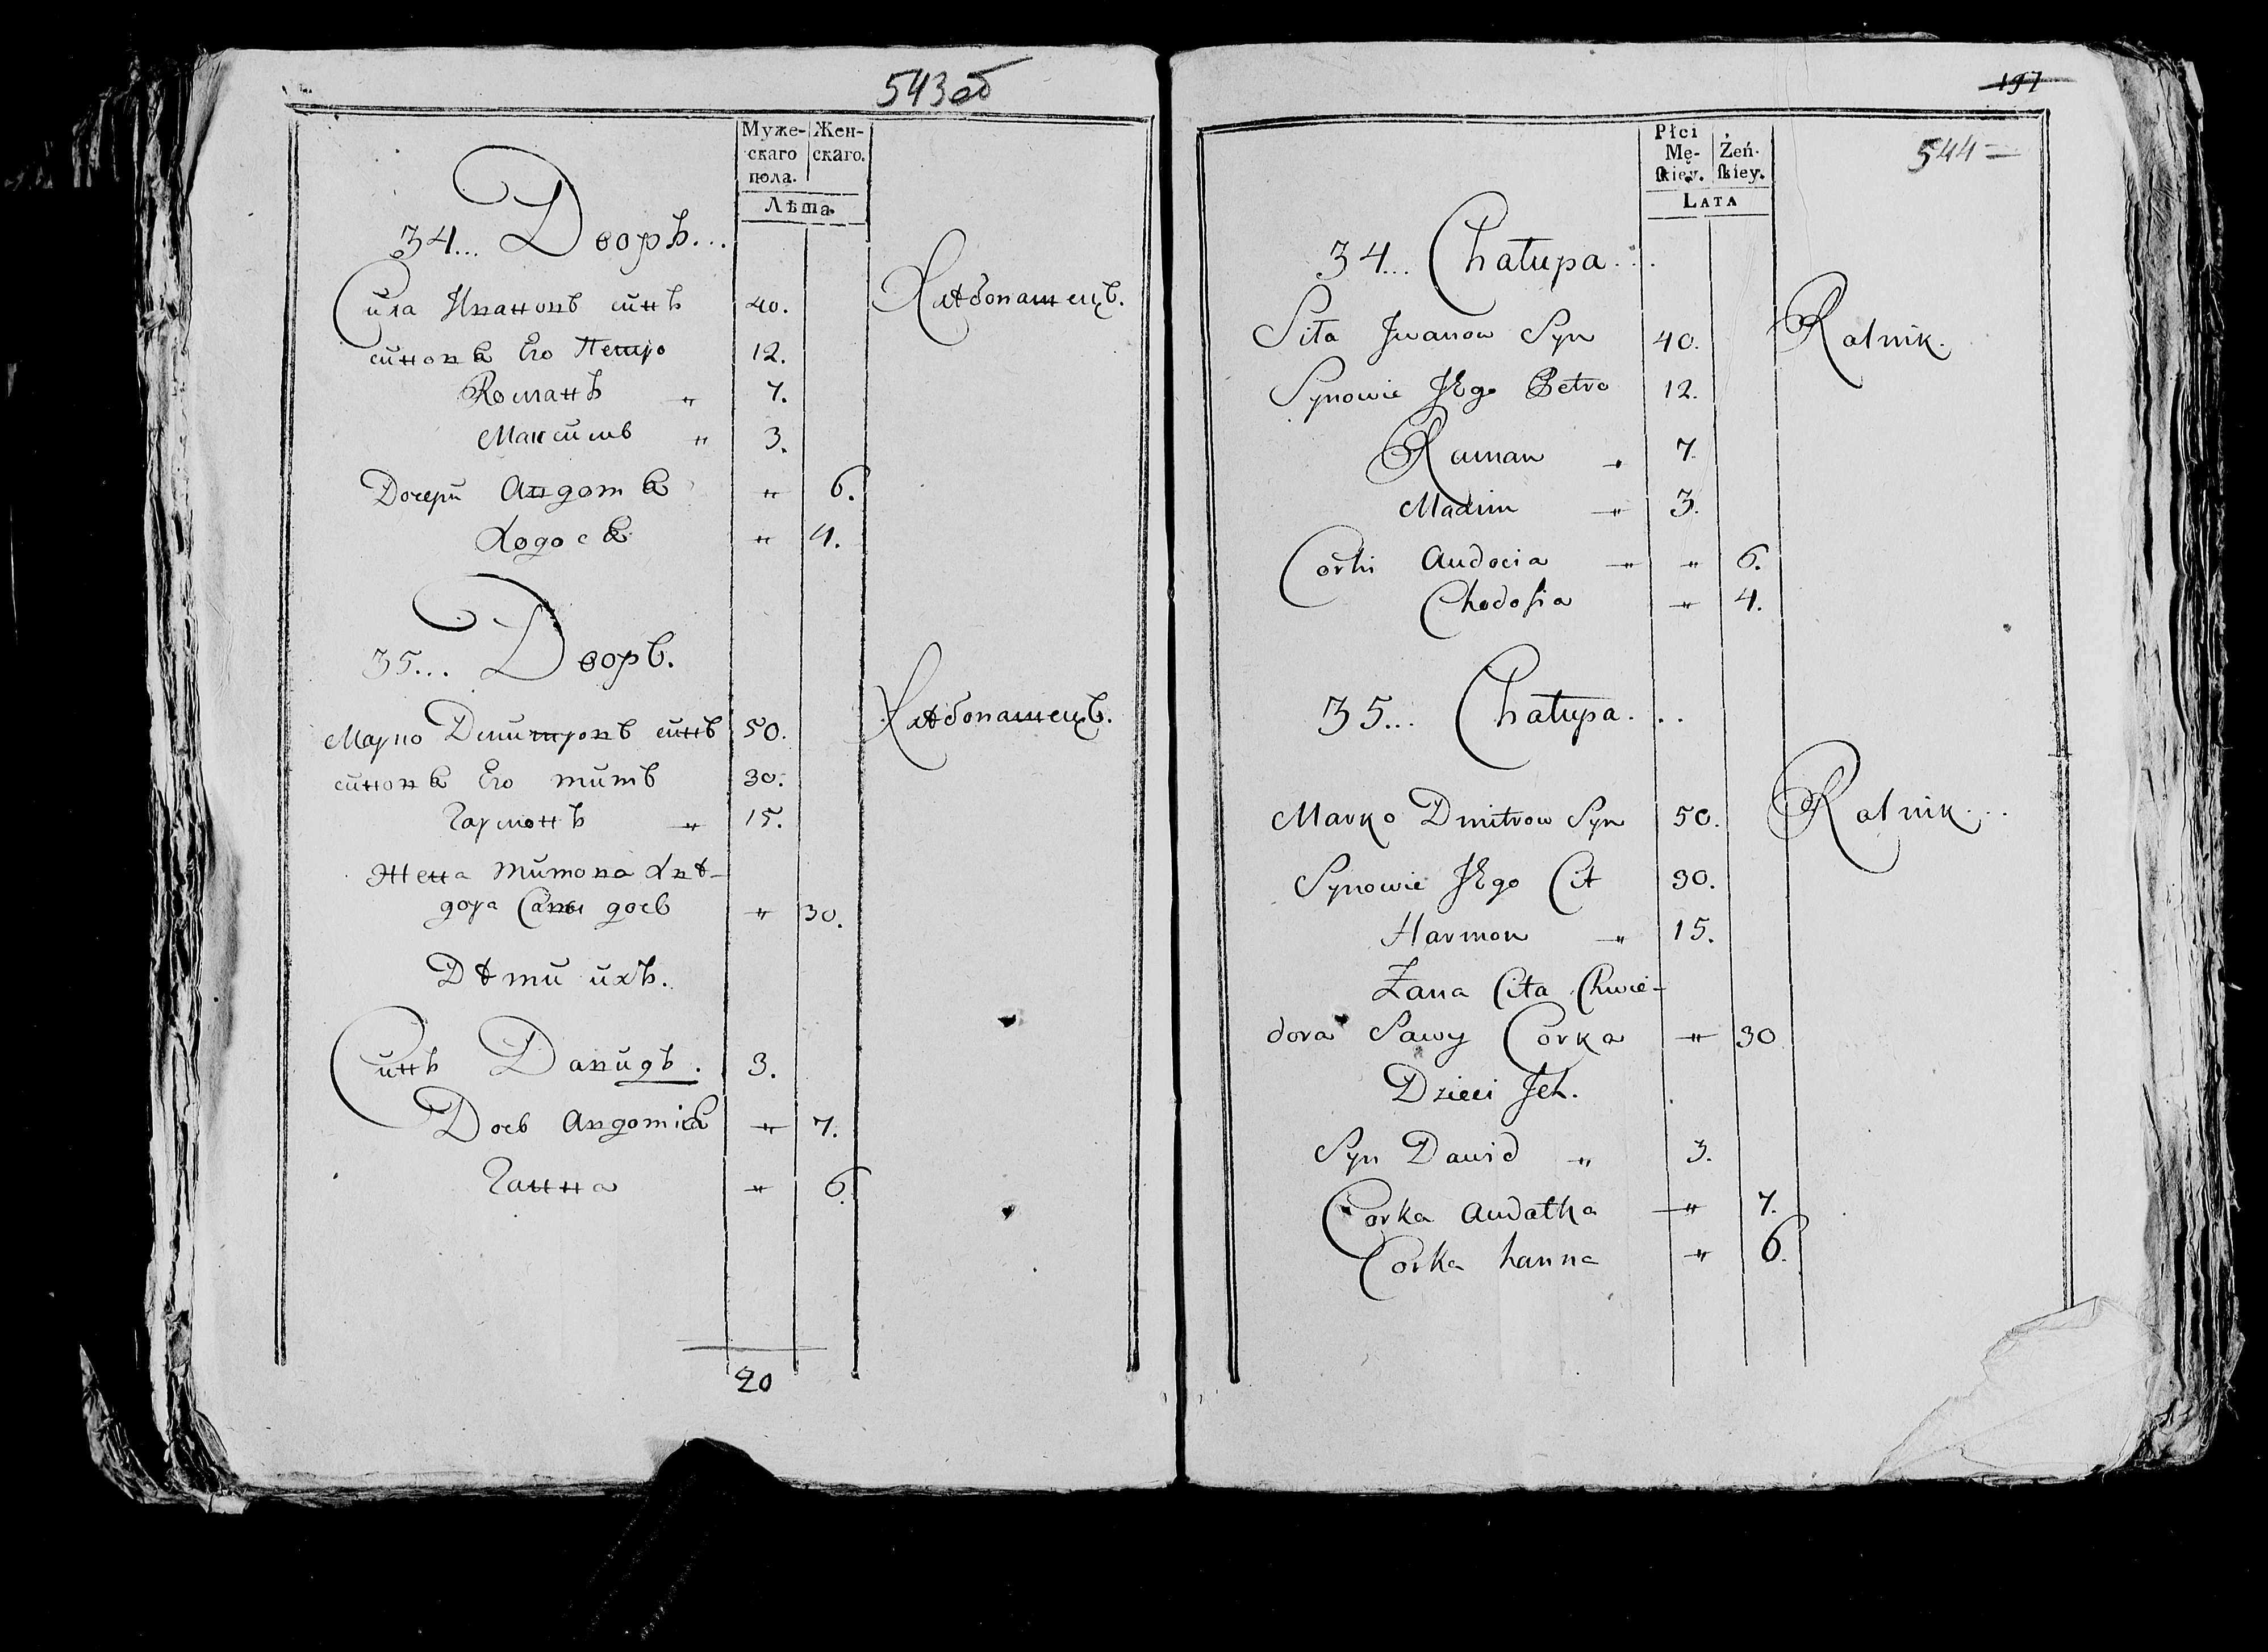 543об
Муже- Жен-
скаго скаго.
пола.
Лѣта.
34... Дворъ...
Сила Ивановъ синъ 40. Хлѣбопашецъ.
синовѣ Его Петро 12.
Романъ „ 7.
Максимъ „ 3.
Дочери „ 6.
„ 4.
35... Дворъ.
Марко Дмитровъ синъ 50. Хлѣбопашецъ.
синовѣ Его титъ 30.
Гармонъ „ 15.
Жена титова Хвѣ-
дора Савы дочь „ 30.
Дѣти ихъ.
Синъ Давидъ. 3.
Дочь „ 7.
Ганна „ 6.
20
197
544
Płci Żeń-
Mę- skiey.
skiey.
LATA
34... Chałupa...
Siła Jwanow Syn 40. Rolnik.
Synowie JEgo Petro 12.
Raman „ 7.
Maxim „ 3.
Corki Audocia „ „ 6.
Chodosia „ 4.
35... Chałupa...
Marko Dmitrow Syn 50. Rolnik...
Synowie JEgo Cit 30.
Harmon „ 15.
Żana Cita Chwie-
dora Sawy Corka „ 30
Dzieci Jch.
Syn Dawid „ 3.
Corka Audatka „ 7.
Corka hanna „ 6.